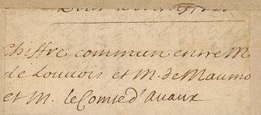 Chiffre commun entre M
de Louvois et M. de Maumo
et M. le Comte d'avaux